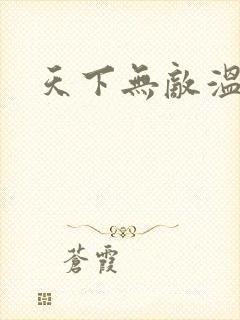 天下無敵溫
蒼霞